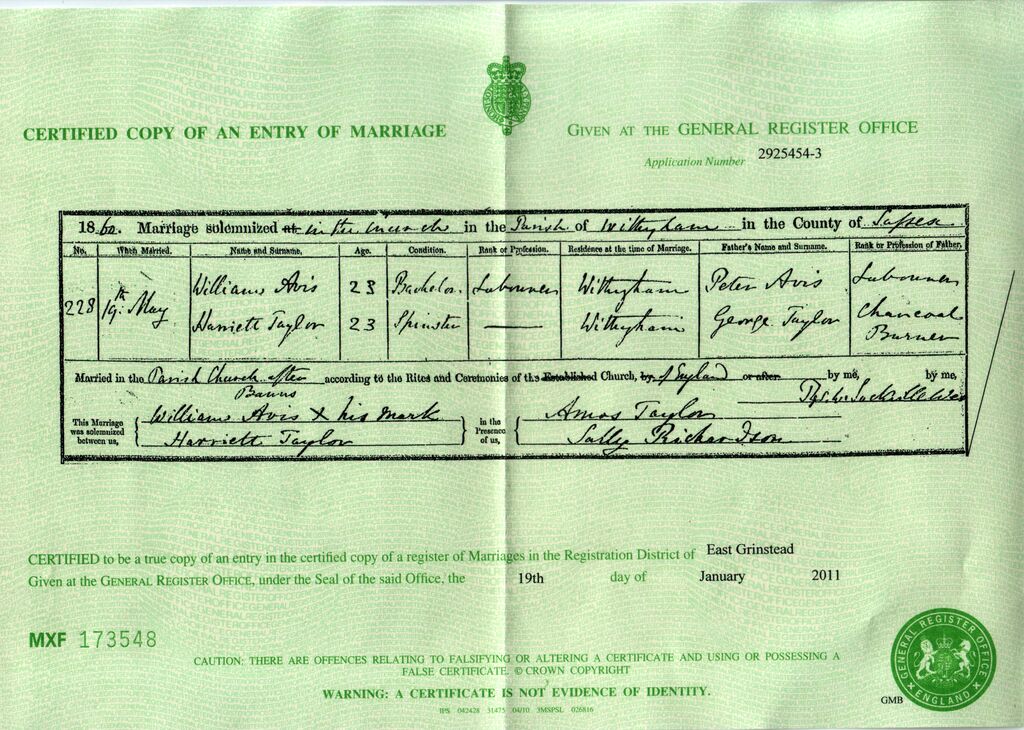 CERTIFIED COPY OF AN ENTRY OF MARRIAGE
GIVEN AT THE GENERAL REGISTER OFFICE
Application Number 2925454-3
1860. Marriage solemnized at in the church in the Parish of Withyham in the County of Sussex
No. When Married. Name and Surname. Age. Condition. Rank or Profession. Residence at the time of Marriage. Father's Name and Surname. Rank or Profession of Father.
228 19th May
William Avis 23 Bachelor Labourer Withyham Peter Avis Labourer
Harriett Taylor 23 Spinster — Withyham George Taylor Charcoal Burner
Married in the Parish Church after Banns according to the Rites and Ceremonies of the Established Church, by of England or after by me, by me,
This Marriage was solemnized between us,
William Avis X his mark
Harriett Taylor
in the Presence of us,
Amos Taylor
Sally Richardson
CERTIFIED to be a true copy of an entry in the certified copy of a register of Marriages in the Registration District of East Grinstead
Given at the GENERAL REGISTER OFFICE, under the Seal of the said Office, the 19th day of January 2011
MXF 173548
CAUTION: THERE ARE OFFENCES RELATING TO FALSIFYING OR ALTERING A CERTIFICATE AND USING OR POSSESSING A
FALSE CERTIFICATE. © CROWN COPYRIGHT
WARNING: A CERTIFICATE IS NOT EVIDENCE OF IDENTITY.
IPS 042428 31475 04/10 3MSPSL 026816
GMB
GENERAL REGISTER OFFICE
ENGLAND